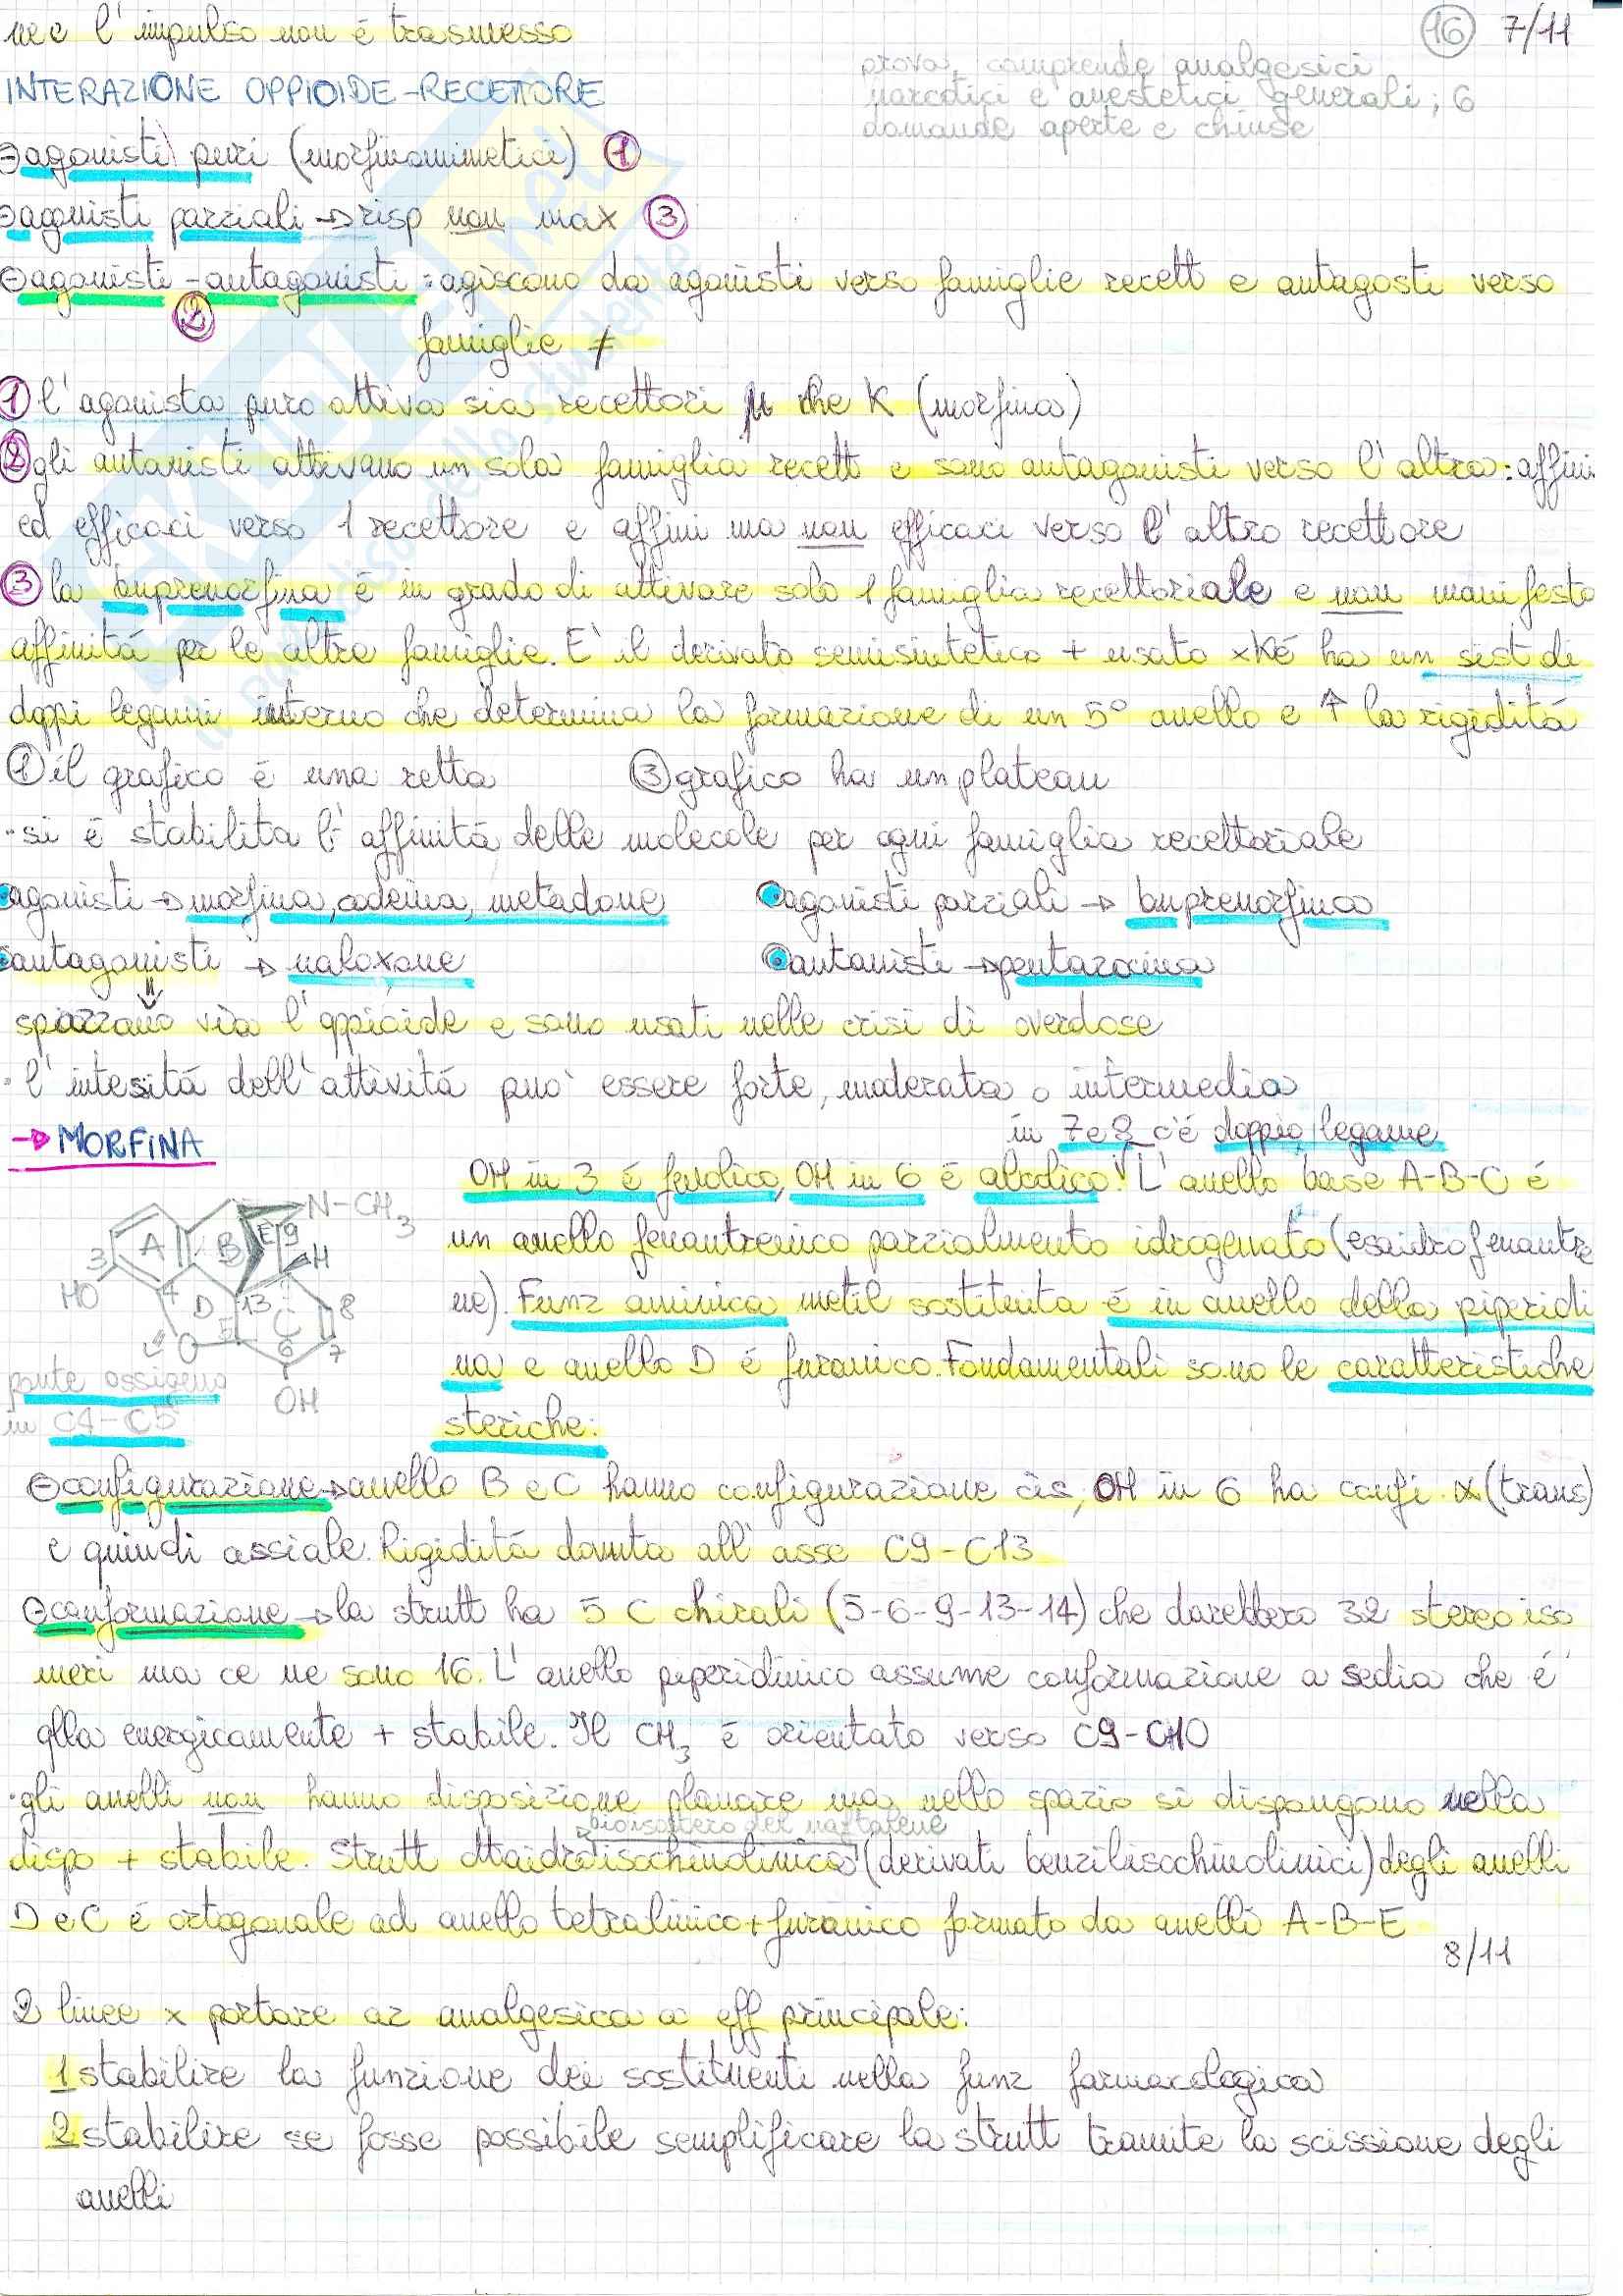 nec l'impulso non é trasmesso
16 7/11
prova, comprende analgesici
narcotici e anestetici generali; 6
domande aperte e chiuse
INTERAZIONE OPPIOIDE-RECETTORE
agonisti puri (morfinomimetici) 1
agonisti parziali → risp non max 3
agonisti-antagonisti: agiscono da agonisti verso famiglie recett e antagosti verso
2
famiglie ≠
1 l'agonista puro attiva sia recettori μ che K (morfina)
2 gli antanisti attivano un sola famiglia recett e sono antagonisti verso l'altra: affini
ed efficaci verso 1 recettore e affini ma non efficaci verso l'altro recettore
3 la buprenorfina é in grado di attivare solo 1 famiglia recettoriale e non manifesta
affinitá per le altre famiglie. E' il derivato semisintetico + usato xké ha un sist di
doppi legami interno che determina la formazione di un 5° anello e ↑ la rigiditá
1 il grafico é una retta
3 grafico ha un plateau
· si é stabilita l'affinitá delle molecole per ogni famiglia recettoriale
agonisti → morfina, codeina, metadone
agonisti parziali → buprenorfina
antagonisti → naloxone
antanisti → pentazocina
spiazzano via l'oppioide e sono usati nelle crisi di overdose
· l'intesitá dell'attivitá puo' essere forte, moderata o intermedia
in 7 e 8 c'é doppio legame
→ MORFINA
OH in 3 é fenolico, OH in 6 é alcolico! L'anello base A-B-C é
un anello fenantrenico parzialmento idrogenato (esaidrofenantre
ne). Funz aminica metil sostituita é in anello della piperidi
na e anello D é furanico. Fondamentali sono le caratteristiche
steriche:
N-CH3
A B E 9 H
3 HO 4 D 13 C 8
O E 6 7
OH
ponte ossigeno
in C4-C5
configurazione → anello B e C hanno configurazione cis, OH in 6 ha confi α (trans)
e quindi assiale. Rigiditá dovuta all'asse C9-C13
conformazione → la strutt ha 5 C chirali (5-6-9-13-14) che darebbero 32 stereoiso
meri ma ce ne sono 16. L'anello piperidinico assume conformazione a sedia che é
qlla energicamente + stabile. Il CH3 é orientato verso C9-C10
· gli anelli non hanno disposizione planare ma nello spazio si dispongono nella
bioisostero del naftalene
dispo + stabile. Strutt ottaidroisochinolinica (derivati benzilisochinolinici) degli anelli
D e C é ortogonale ad anello tetralinico + furanico formato da anelli A-B-E
8/11
2 linee x portare az analgesica a eff principale:
1 stabilire la funzione dei sostituenti nella funz farmacologica
2 stabilire se fosse possibile semplificare la strutt tramite la scissione degli
anelli